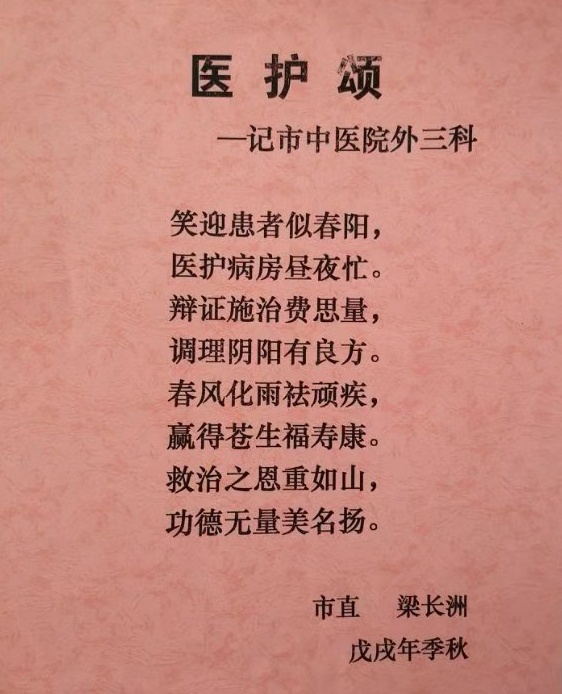 医护颂
—记市中医院外三科
笑迎患者似春阳，
医护病房昼夜忙。
辩证施治费思量，
调理阴阳有良方。
春风化雨祛顽疾，
赢得苍生福寿康。
救治之恩重如山，
功德无量美名扬。
市直 梁长洲
戊戌年季秋